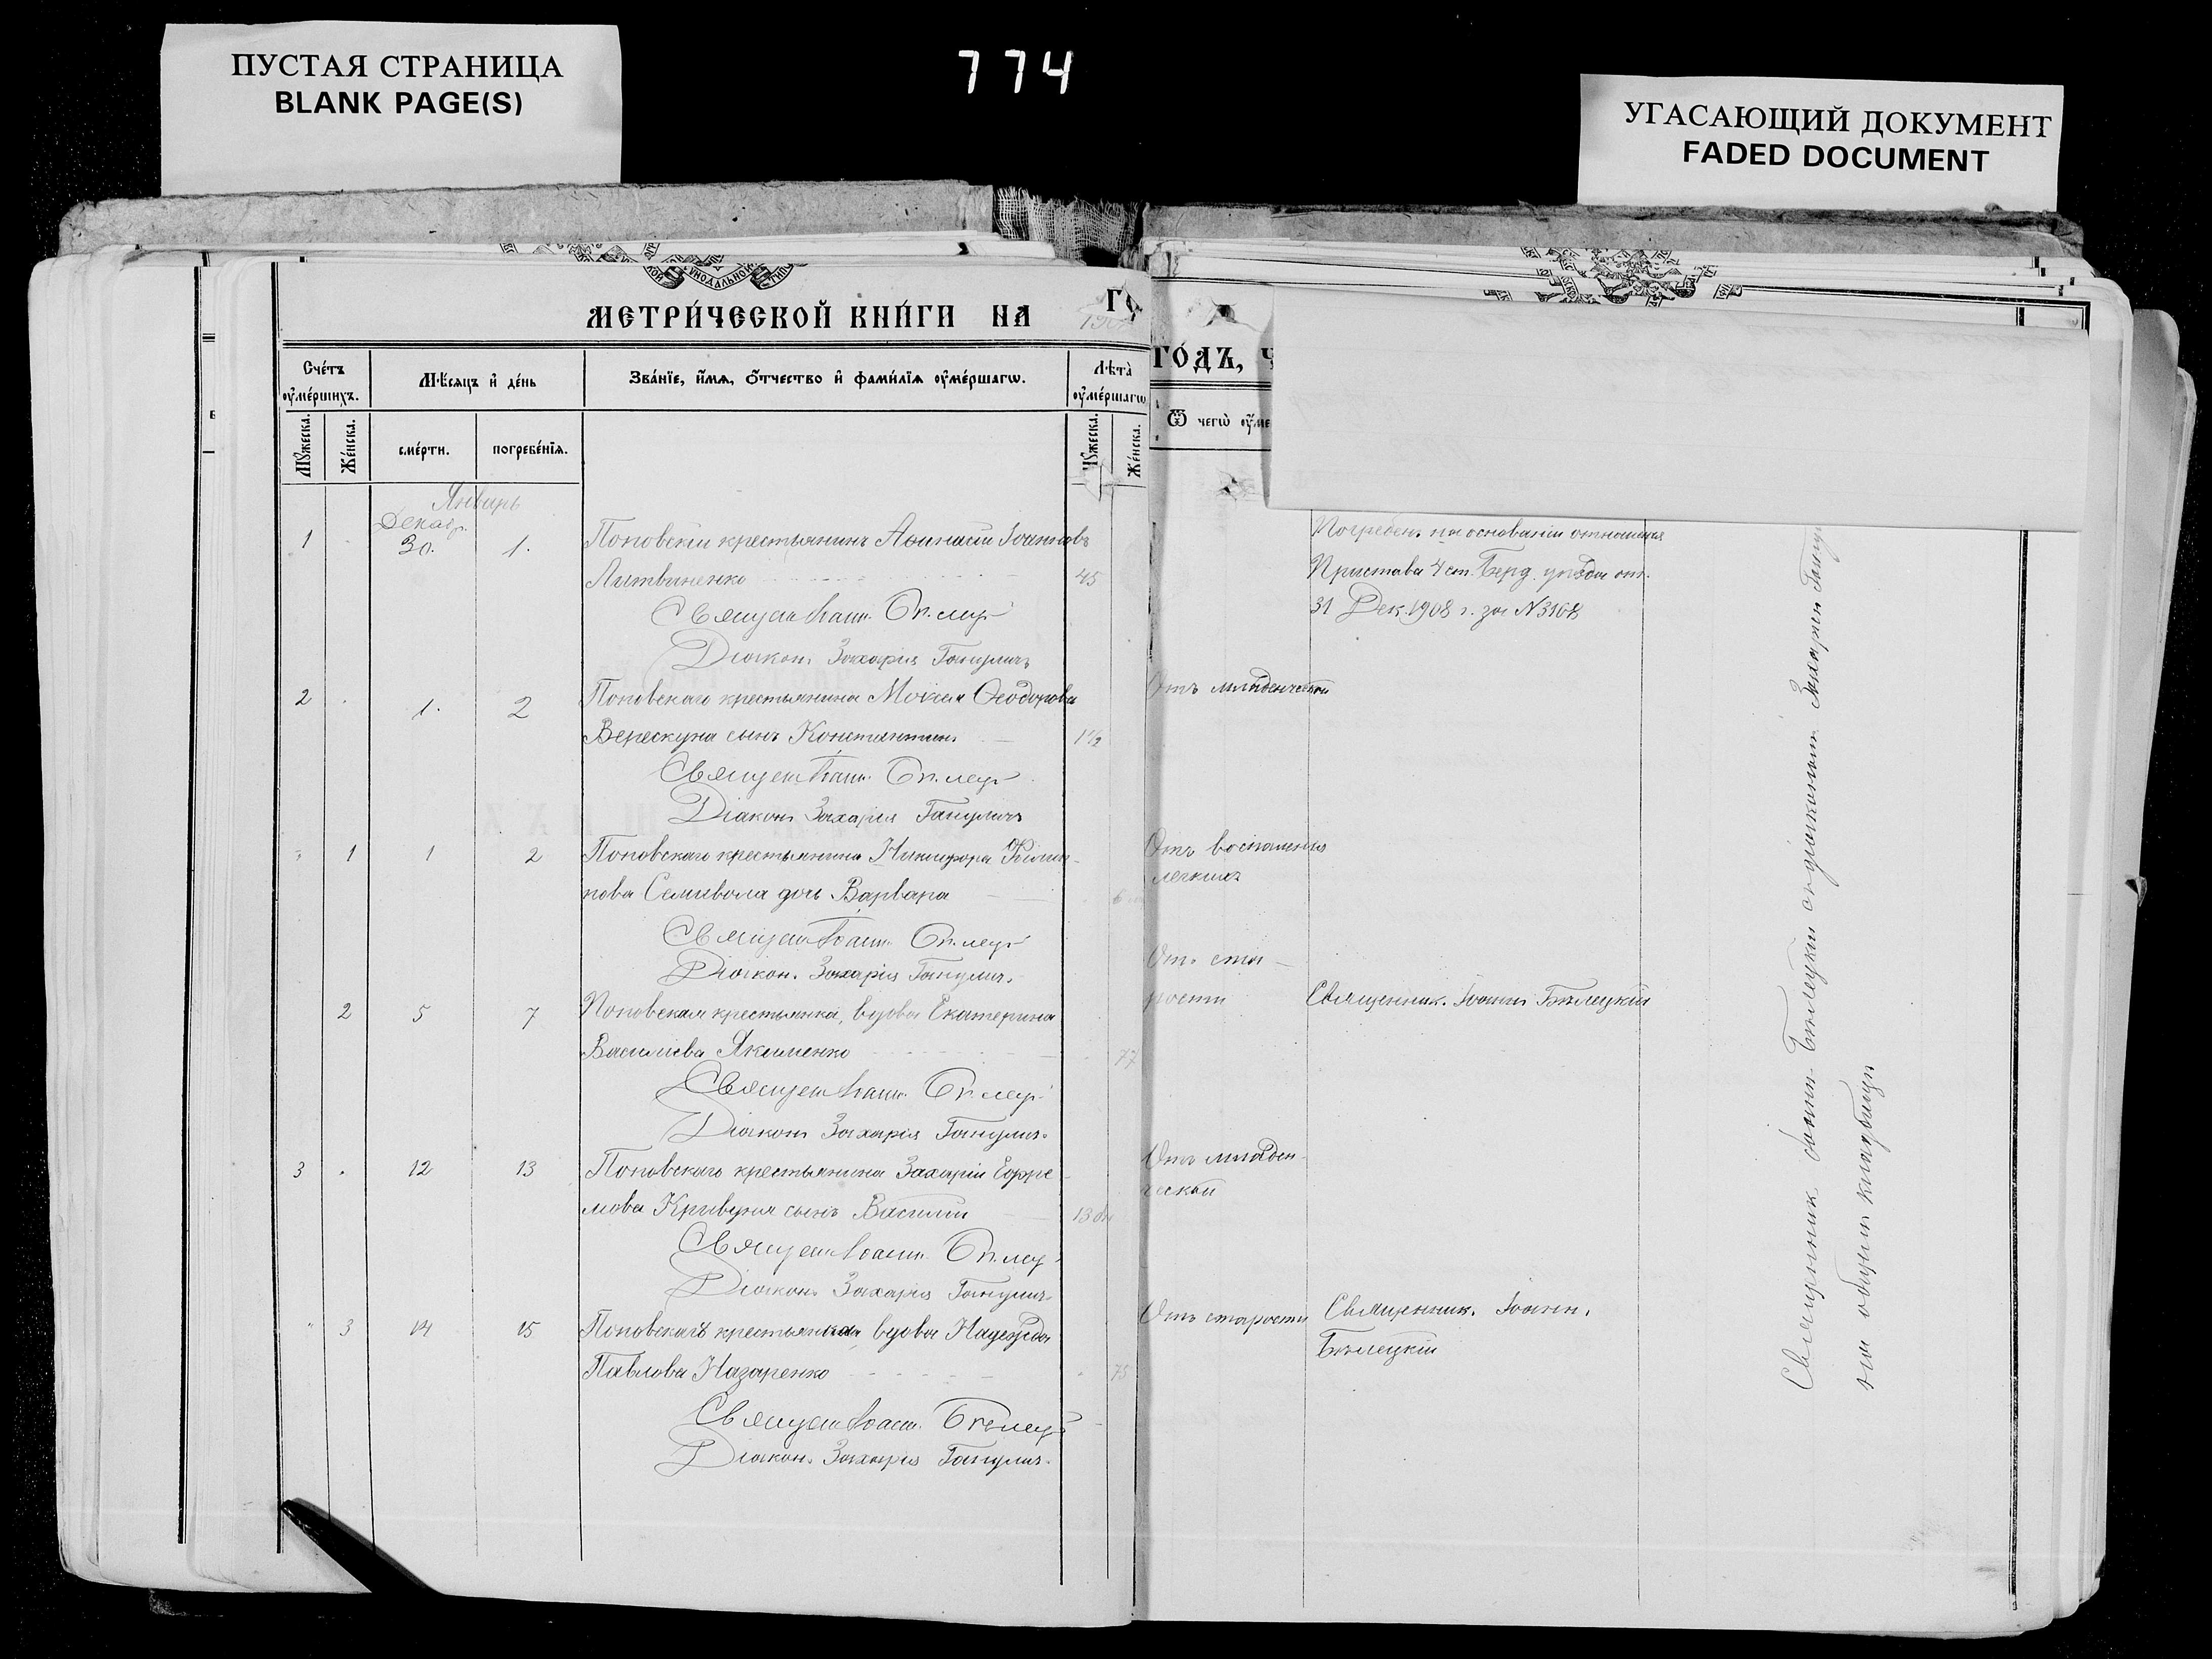 ПУСТАЯ СТРАНИЦА
BLANK PAGE(S)
774
УГАСАЮЩИЙ ДОКУМЕНТ
FADED DOCUMENT
МЕТРИ́ЧЕСКОЙ КНИ́ГИ НА
ГО́ДЪ,
Сче́тъ оуме́ршихъ.
Мѣ́сяцъ и де́нь
Зва́нїе, и́мя, о́тчество и фами́лїя оуме́ршагѡ.
Лѣта̀ оуме́ршагѡ
Ѿ чегѡ̀ оуме
Му́жеска.
Же́нска.
сме́рти.
погребе́нїя.
Му́жеска.
Же́нска.
Январь
Декабр.
1 30. 1. Поповскій крестьянинъ Аѳинасій Іоанновъ
Литвиненко 45
Священ Іоан. Бѣлец
Діакон. Захарія Ганулич
Погребен. на основаніи отношенія
Пристава 4 ст. Берд. уѣзда от.
31 Дек. 1908 г. за № 3168
2 1. 2 Поповскаго крестьянина Моисея Ѳеодорова
Верескуна сынъ Константин. 1½
Священ Іоан. Бѣлец
Діакон Захарія Ганулич
Отъ младенческой
1 1 2 Поповскаго крестьянина Никифора Филип-
пова Семивола дочь Варвара
Священ Іоан. Бѣлец
Діакон. Захарія Ганулич.
Отъ воспаленія
легкихъ
2 5 7 Поповская крестьянка, вдова Екатерина
Василіева Якименко 77
Священ Іоан. Бѣлец
Діакон Захарія Ганулич.
От. ста-
рости
Священник. Іоанн Бѣлецкій
3 12 13 Поповскаго крестьянина Захаріи Ефре-
мова Кривуна сынъ Василій 13 дн
Священ Іоан. Бѣлец
Діакон. Захарія Ганулич.
Отъ младен-
ческой
3 14 15 Поповская крестьянка вдова Надежда
Павлова Назаренко 75
Священ Іоан. Бѣлец
Діакон. Захарія Ганулич.
Отъ старости
Священник. Іоанн.
Бѣлецкій
Священник Іоанн Бѣлецкій съ діаконом Захаріем
на общем кладбищѣ